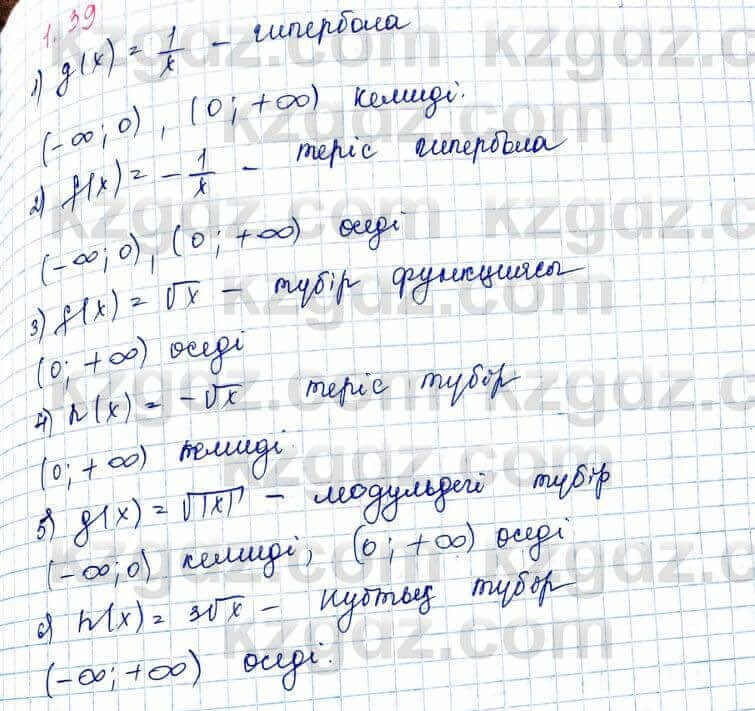 1.39
1) g(x) = 1/x - гипербола
(-∞; 0), (0; +∞) кемиді.
2) f(x) = -1/x - теріс гипербола
(-∞; 0), (0; +∞) өседі
3) f(x) = √x - түбір функциясы
(0; +∞) өседі
4) h(x) = -√x теріс түбор
(0; +∞) кемиді.
5) g(x) = √|x| - модульдегі түбір
(-∞; 0) кемиді, (0; +∞) өседі
6) h(x) = 3√x - түбор
(-∞; +∞) өседі.
kzgdz.com